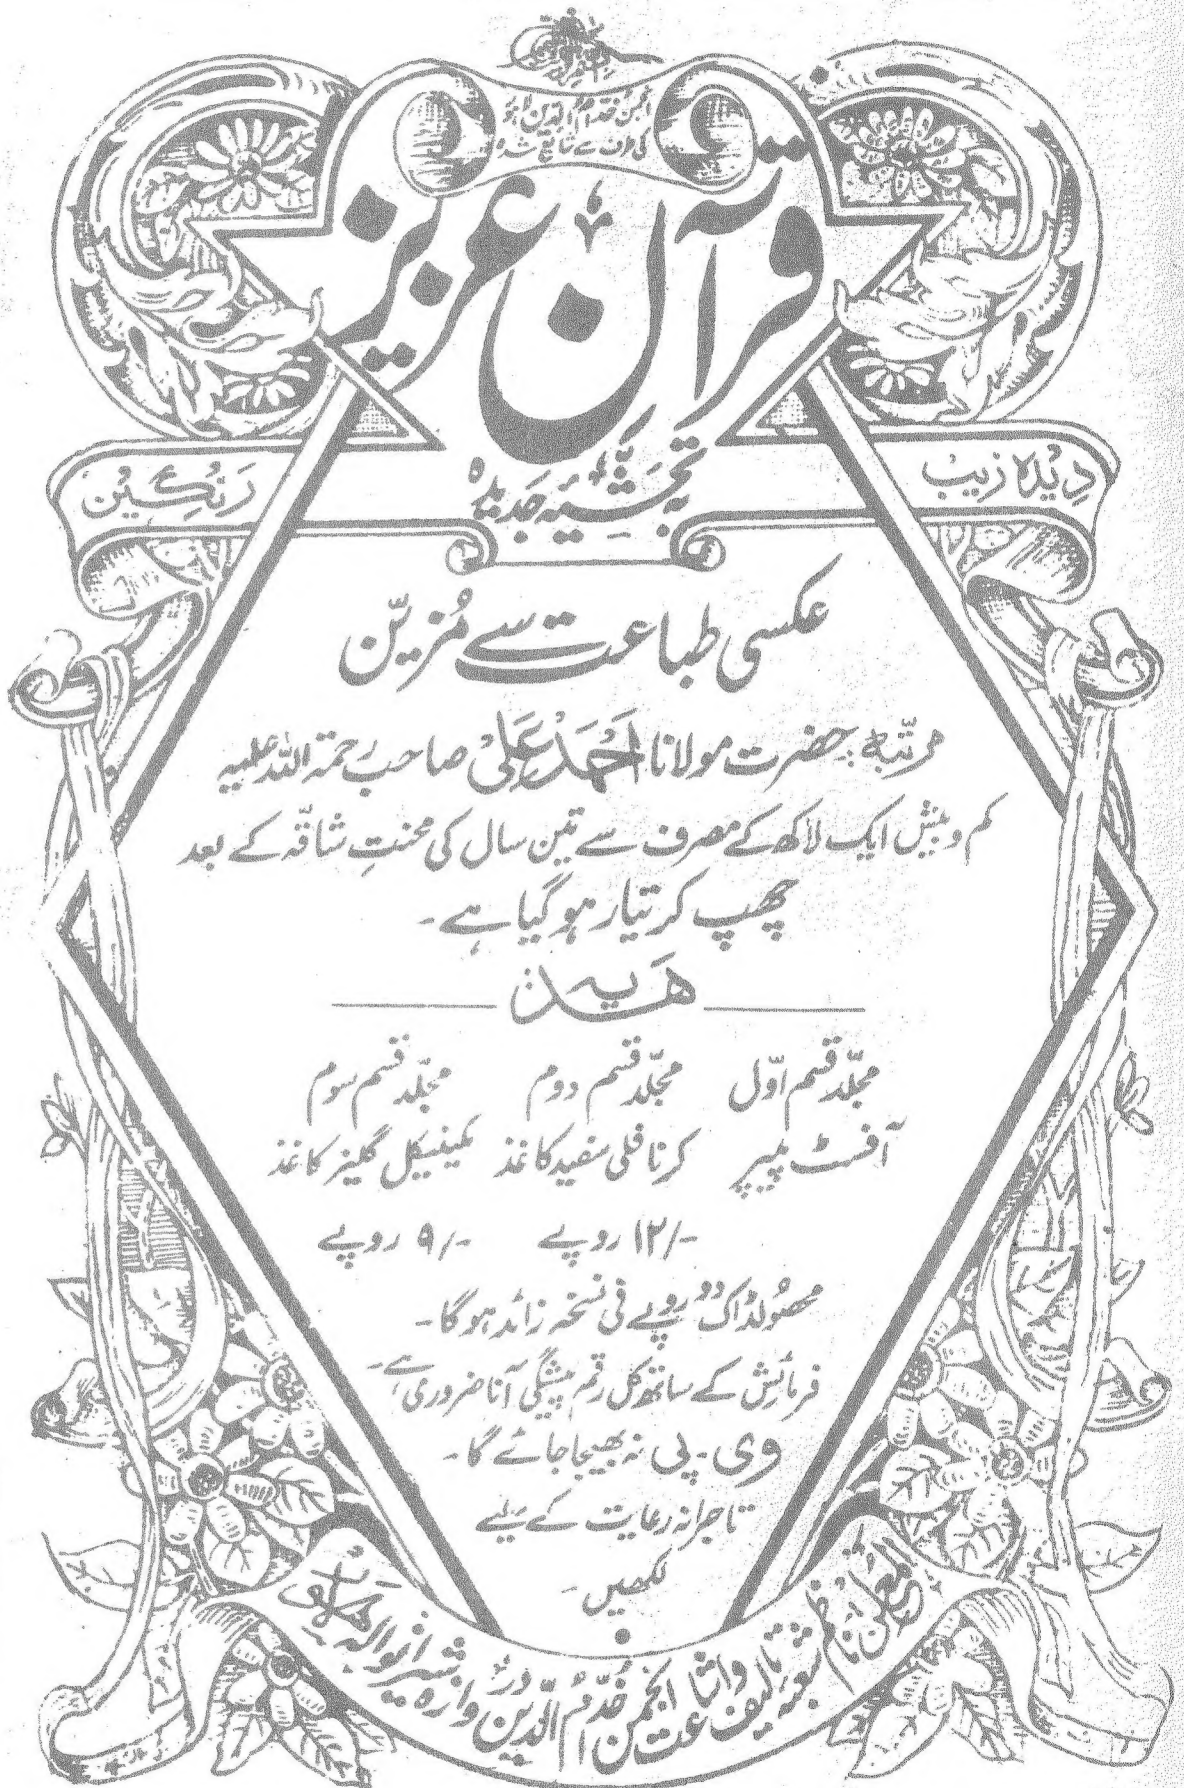 انجمن خدام الدین لاہور
کی طرف سے شائع شدہ
قرآن عزیز
دیدہ زیب
رنگین
بہ تحشیہ جدیدہ
عکسی طباعت سے مُزیّن
مرتّبہ: حضرت مولانا اَحْمَدْ عَلِیْ صاحب رحمۃ اللہ علیہ
کم و بیش ایک لاکھ کے مصرف سے تین سال کی محنتِ شاقّہ کے بعد
چھپ کر تیار ہو گیا ہے۔
ھَدیہ
مجلّد قسم اوّل مجلّد قسم دوم مجلّد قسم سوم
آفسٹ پیپر کرنافلی سفید کاغذ مکینیکل گلیز کاغذ
۱۲/- روپے ۹/- روپے
محصولڈاک دو روپے فی نسخہ زائد ہوگا۔
فرمائش کے ساتھ کل رقم پیشگی آنا ضروری ہے۔
وی۔ پی نہ بھیجا جائے گا۔
تاجرانہ رعایت کے لیے
لکھیں۔
المعلن ناظم شعبۂ تالیف و اشاعت انجمن خُدّام الدّین دروازہ شیرانوالہ لاہور